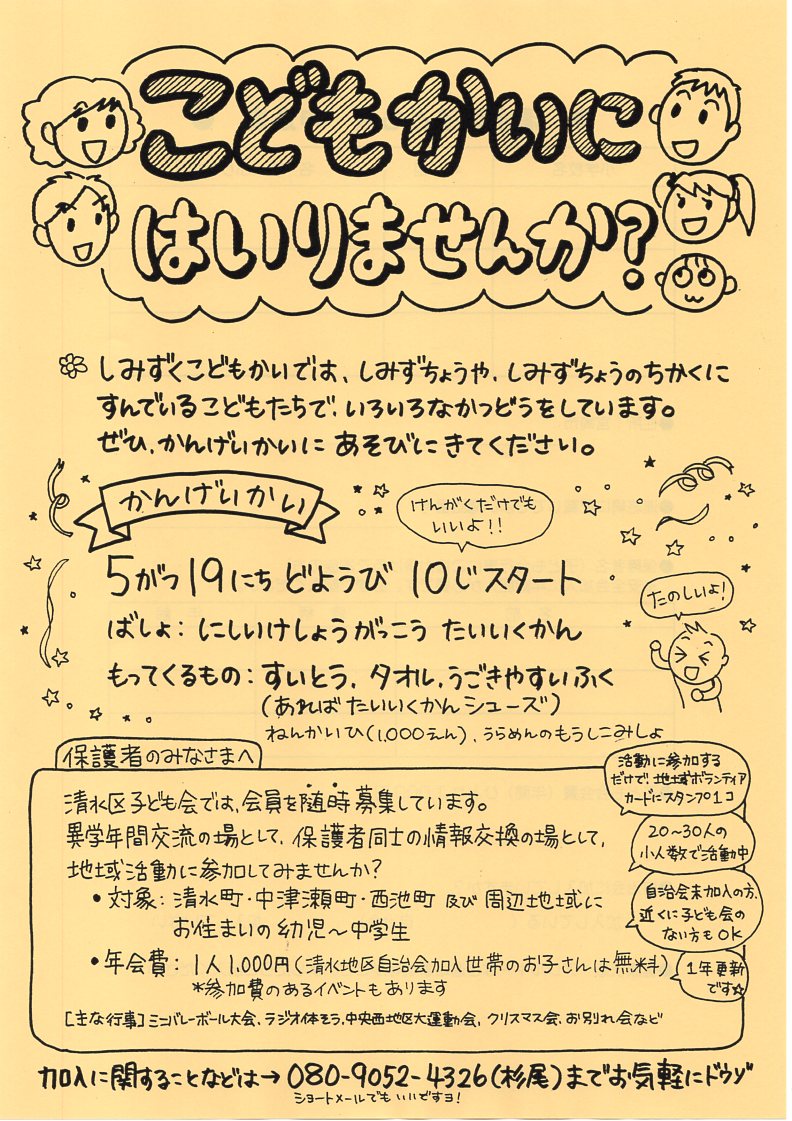 こどもかいに
はいりませんか?
しみずくこどもかいでは、しみずちょうや、しみずちょうのちかくに
すんでいるこどもたちで、いろいろなかつどうをしています。
ぜひ、かんげいかいに あそびにきてください。
かんげいかい
けんがくだけでも
いいよ!!
5がつ19にち どようび 10じスタート
たのしいよ!
ばしょ:にしいけしょうがっこう たいいくかん
もってくるもの:すいとう、タオル、うごきやすいふく
(あればたいいくかんシューズ)
ねんかいひ(1,000えん)、うらめんのもうしこみしょ
保護者のみなさまへ
活動に参加する
だけで、地域ボランティア
カードにスタンプ1コ
清水区子ども会では、会員を随時募集しています。
異学年間交流の場として、保護者同士の情報交換の場として、
地域活動に参加してみませんか?
20〜30人の
小人数で活動中
・対象:清水町・中津瀬町・西池町 及び 周辺地域に
お住まいの幼児〜中学生
自治会未加入の方、
近くに子ども会の
ない方もOK
・年会費:1人1,000円(清水地区自治会加入世帯のお子さんは無料)
*参加費のあるイベントもあります
1年更新
です☆
[主な行事]ミニバレーボール大会、ラジオ体そう、中央西地区大運動会、クリスマス会、お別れ会など
加入に関することなどは→080-9052-4326(杉尾)までお気軽にドウゾ
ショートメールでもいいですヨ!